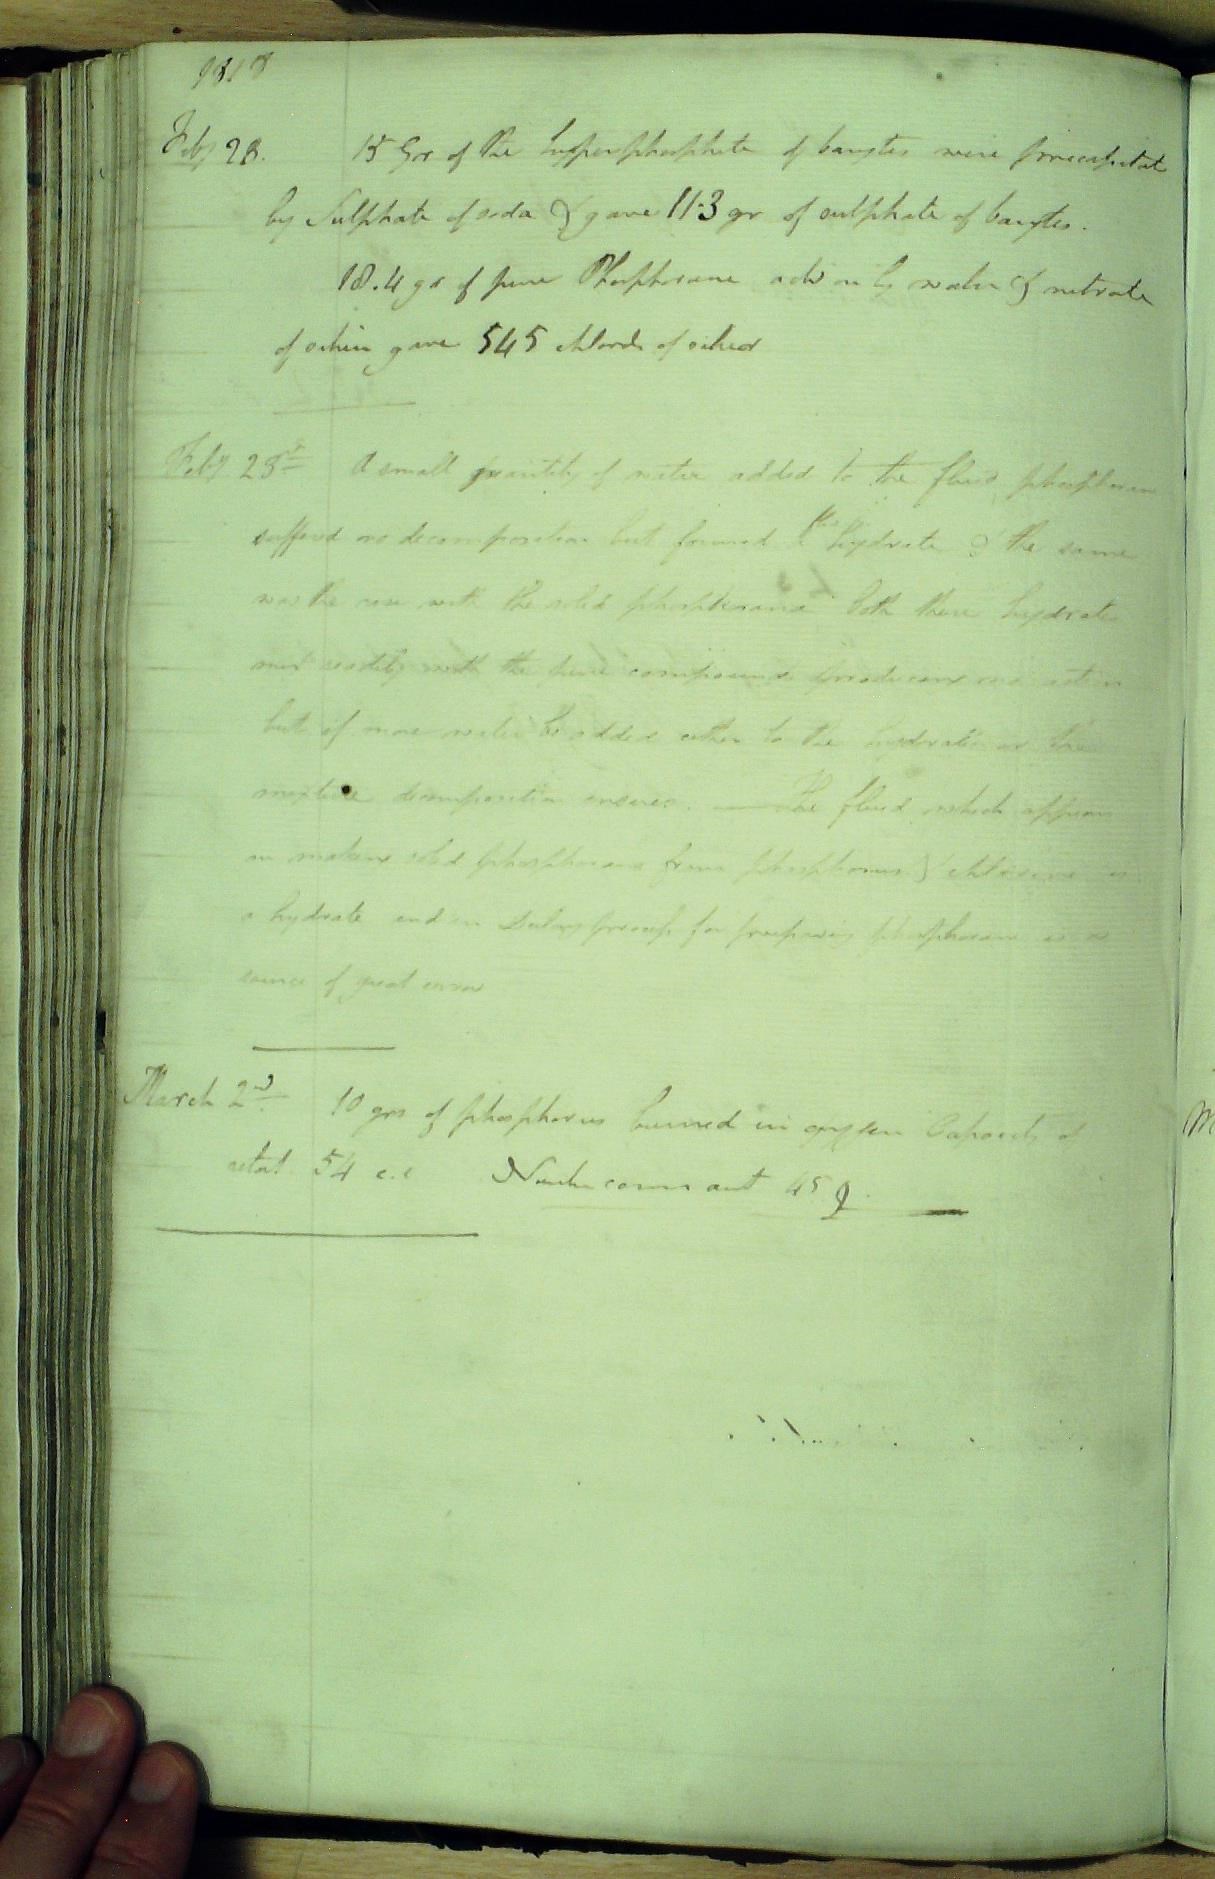 1818
Feby 28. 15 Grs of the hypophosphite of barytes were precipitated
by Sulphate of soda & gave 11.3 gr of sulphate of barytes.
18.4 gr of pure Phosphorane acted on by water & nitrate
of silver gave 545 chloride of silver
Feby 28th A small quantity of water added to the fluid phosphorane
suffered no decomposition but formed hydrate & the same
was the case with the solid phosphorana both these hydrates
mix readily with the pure compounds producing no action
but if more water be added either to the hydrates or the
mixture decomposition ensues. — The fluid which appears
in making solid phosphorana from phosphorus & chlorine is
a hydrate and in process for preparing phosphorane is a
source of great error
March 2nd 10 grs of phosphorus burned in oxygen Capacity of
retort 54 c.i 45
M